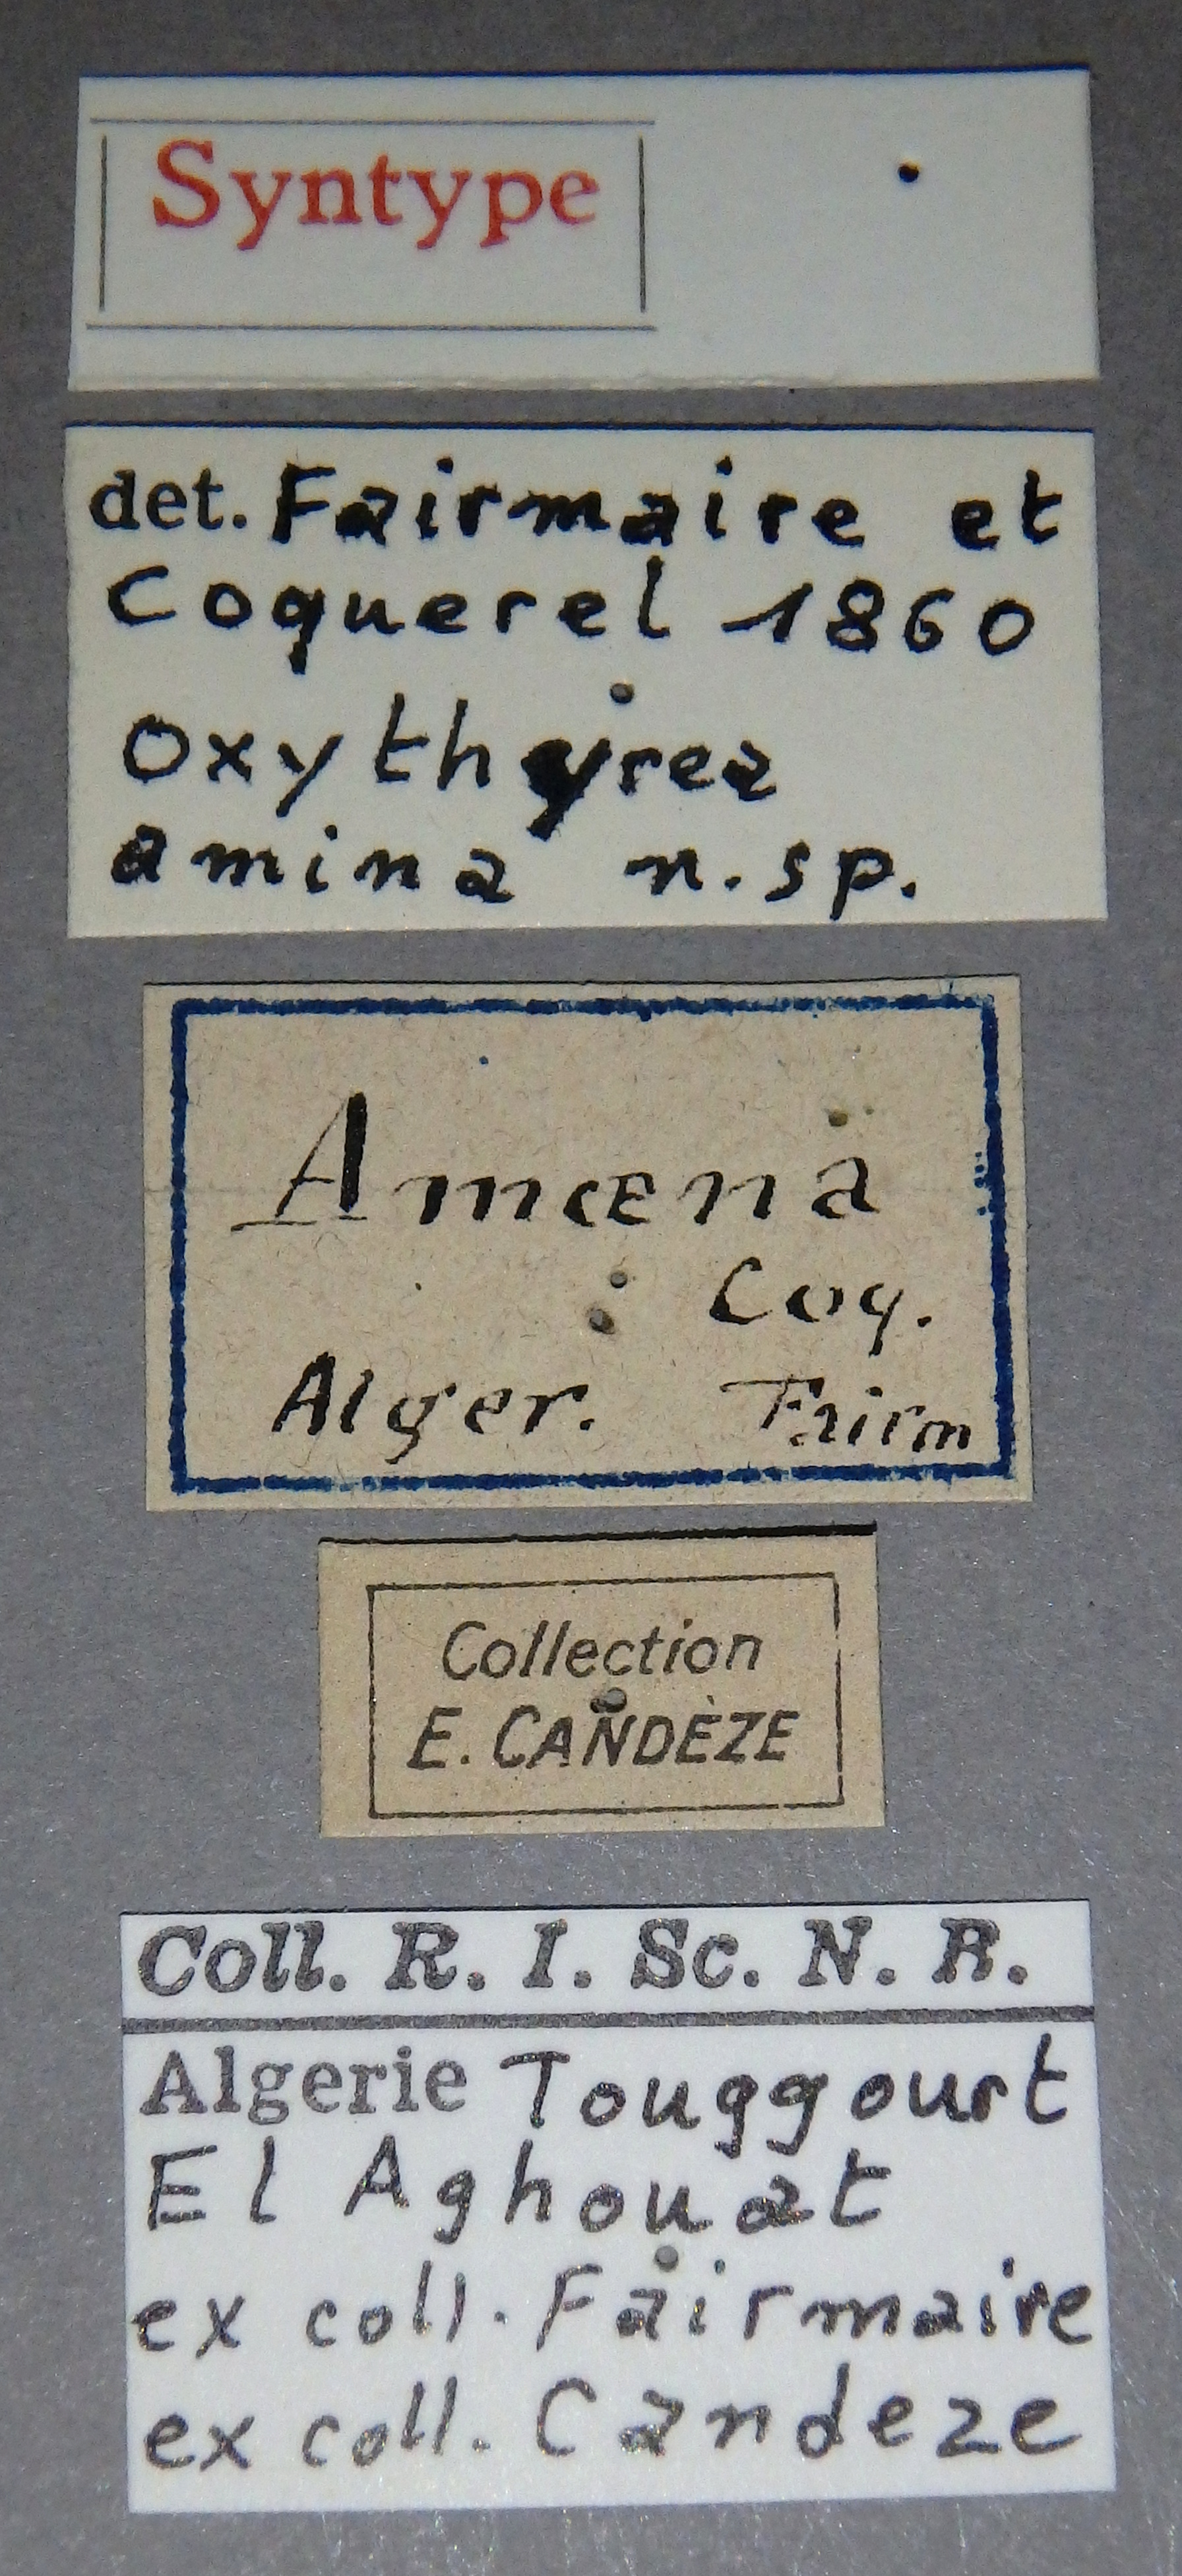 Syntype
det. Fairmaire et
Coquerel 1860
Oxythyrea
amina n.sp.
Amœna
Coq.
Alger. Fairm
Collection
E. CANDÈZE
Coll. R. I. Sc. N. B.
Algerie Touggourt
El Aghouat
ex coll. Fairmaire
ex coll. Candeze